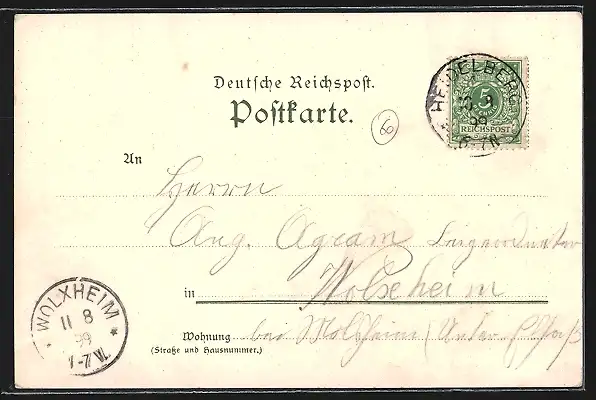 Deutsche Reichspost.
Postkarte.
HEIDELBERG
99
6-7N
5
REICHSPOST
6
An
Herrn
Aug. Agram
in Wolxheim
WOLXHEIM
11 8
99
Wohnung bei Molsheim (Unter Elsaß
(Straße und Hausnummer.)